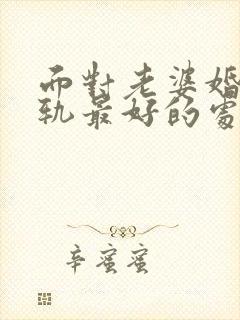 而對老婆婚
軌最好的處
辛蜜蜜